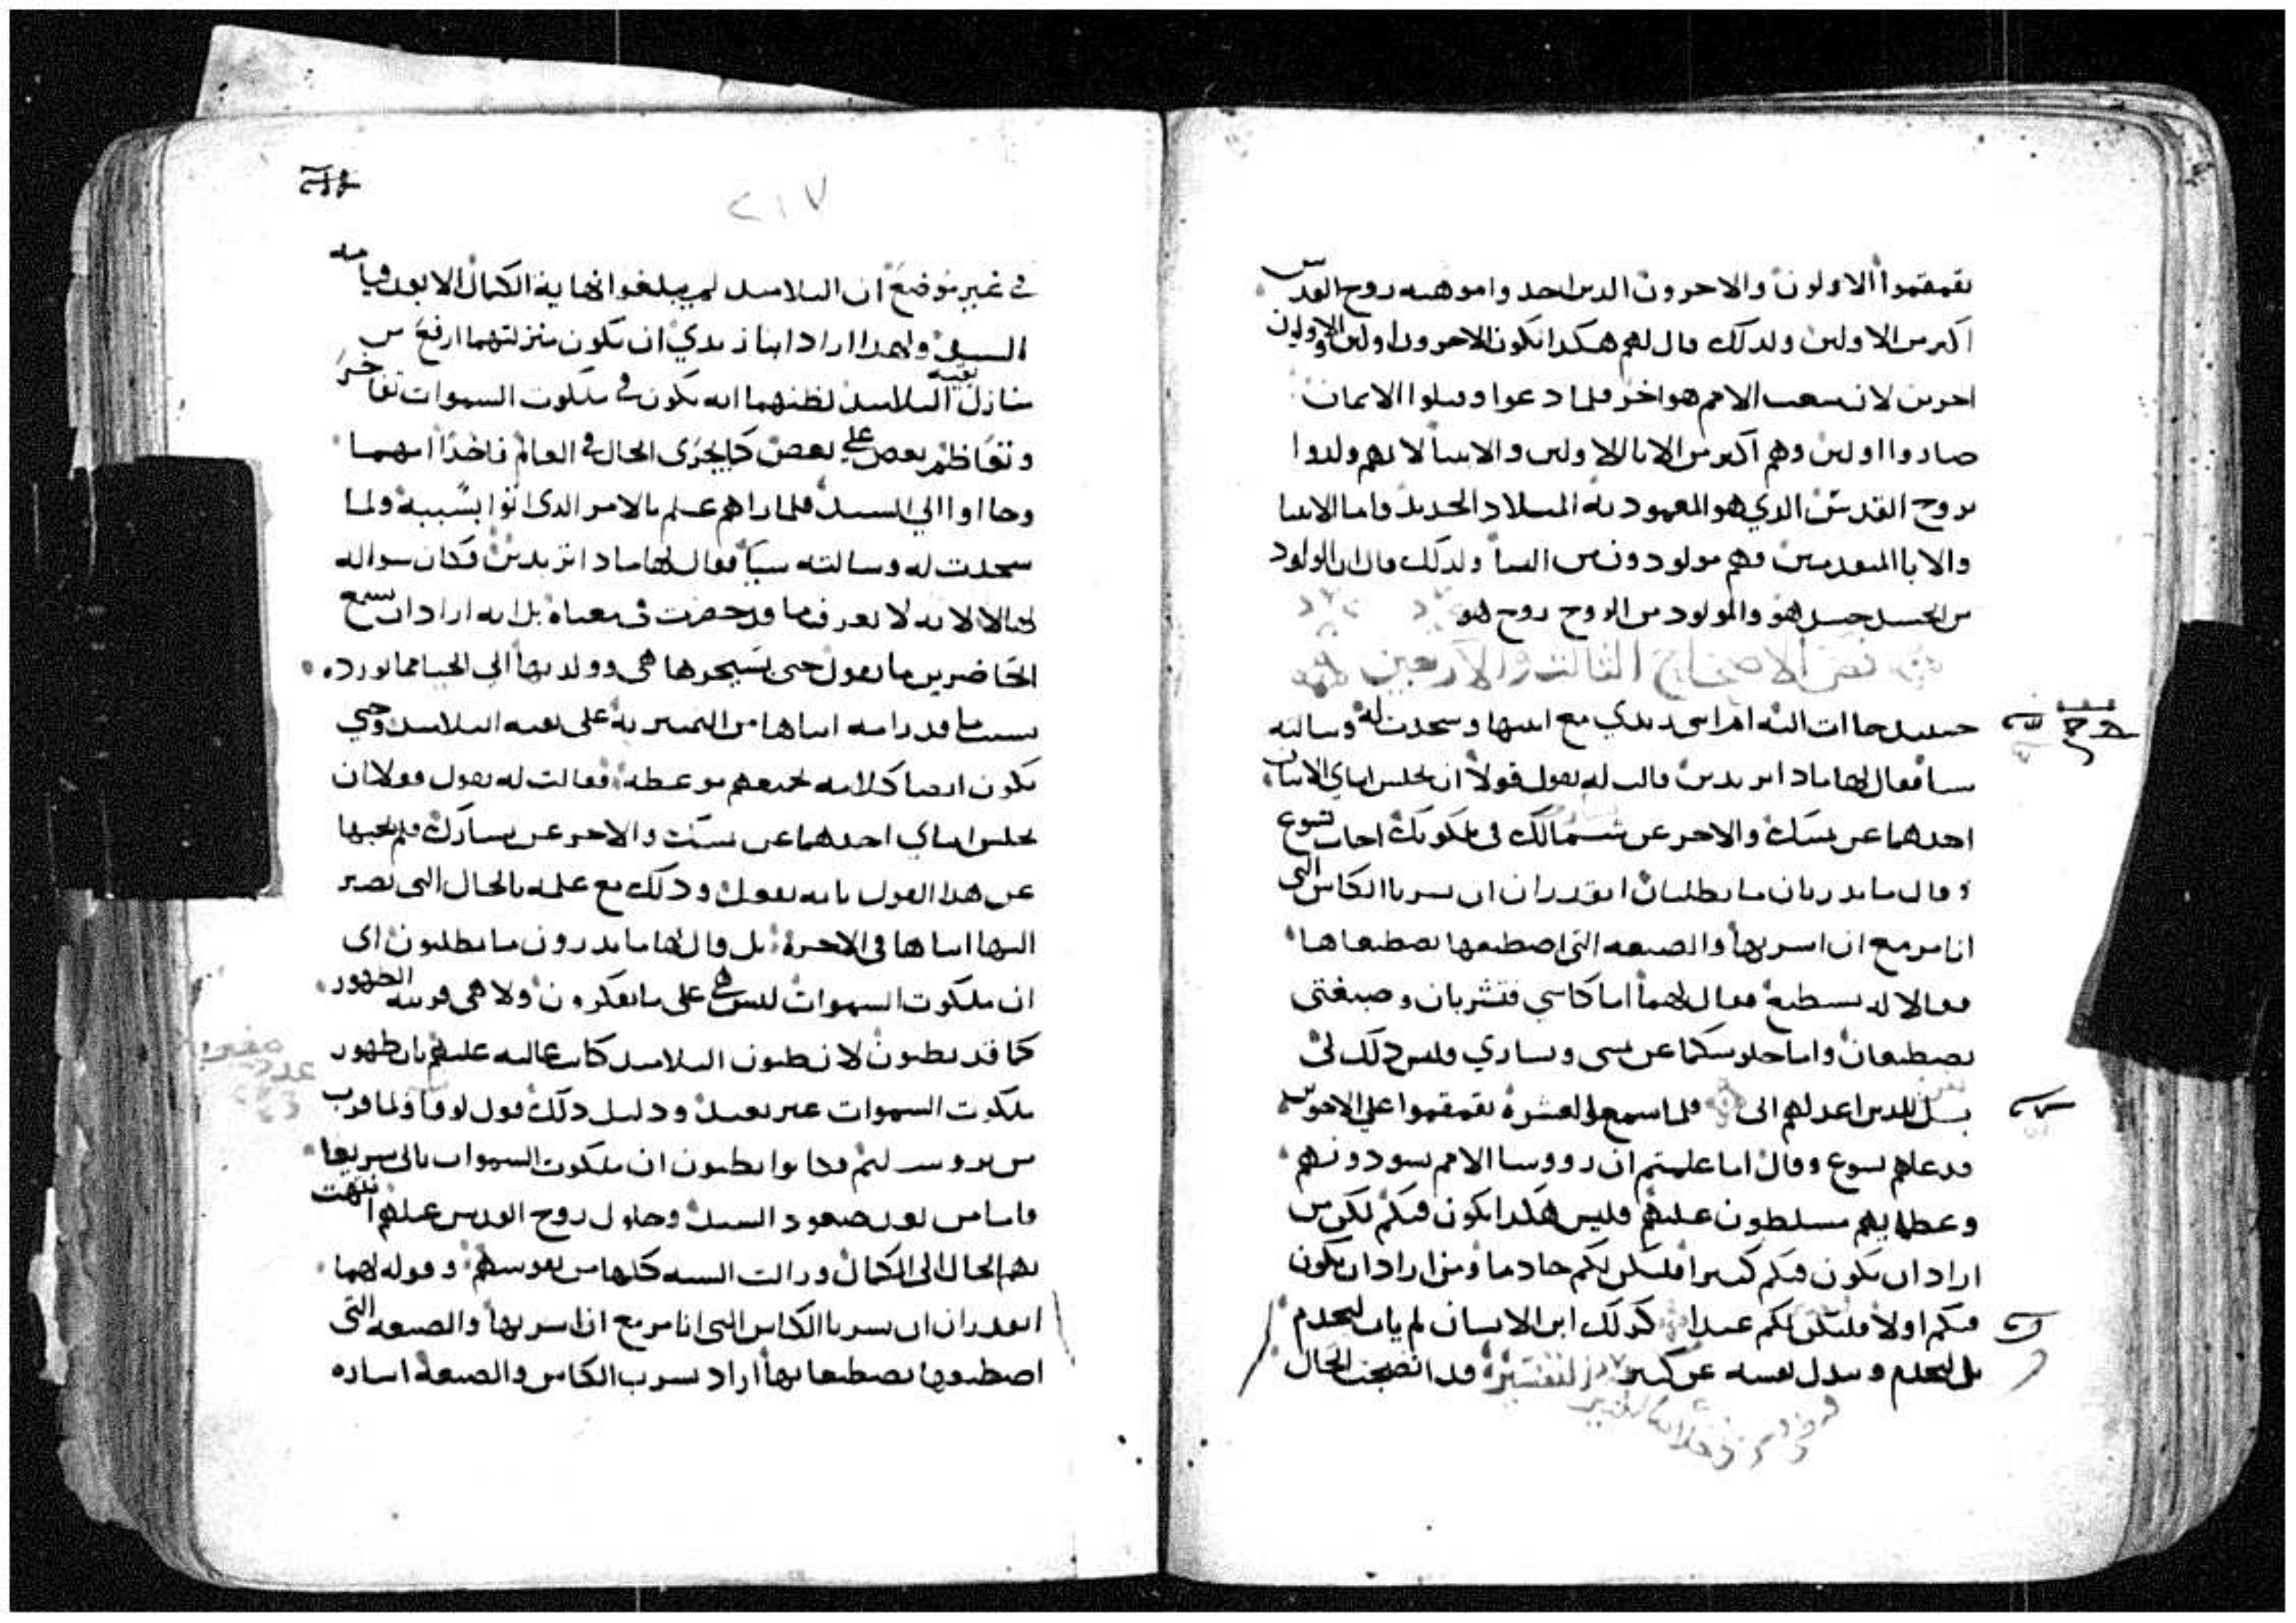 تقمقموا الاولون والاخرون الدين احد وا موهبه روح القدس
اكبر من الاولين ولدلك قال لهم هكدا تكون الاخرون اولين والاولون
اخرين لان شعب الامم هو اخر فلما دعوا وقبلوا الايمان
صاروا اولين وهم اكبر من الابا الاولين والانبيا لانهم ولدوا
بروح القدس الدي هو المعموديه الميلاد الجديد واما الانبيا
والابا المتقدمين فهم مولودون من النسا ولدلك قال ان المولود
من الجسد جسد هو والمولود من الروح روح هو
نص الاصحاح الثالث والاربعين
حينيد جاات اليه ام ابني زبدي مع ابنيها وسجدت له وسالته
سيا فقال لها مادا تريدين قالت له تقول قولا ان يجلس ابناي الاتنان
احدهما عن يمينك والاخر عن شمالك في ملكوتك اجاب يسوع
وقال ما تدريان ما تطلبان اتقدران ان تسربا الكاس التي
انا مزمع ان اسربها والصبغه التي اصطبغها تصطبغاها
فقالا له نستطيع فقال لهما اما كاسي فتشربان وصبغتي
تصطبغان واما جلوسكما عن يميني ويساري فليس دلك لي
بل للدين اعد لهم ابي فلما سمعوا العشره تقمقموا على الاخوين
فدعاهم يسوع وقال اما علمتم ان رووسا الامم يسودونهم
وعظمايهم مسلطون عليهم فليس هكدا يكون فيكم لكن من
اراد ان يكون فيكم كبيرا فليكن لكم خادما ومن اراد ان يكون
فيكم اولا فليكن لكم عبدا كدلك ابن الانسان لم يات ليخدم
بل ليخدم ويبدل نفسه عن كتير التفسير قد اتضحت الحال
٢١٧
في غير موضع ان التلاميد لم يبلغوا نهاية الكمال الا بعد قيامه
السيد ولهدا اراد ابنا زبدي ان تكون منزلتهما ارفع من
منازل بقيه التلاميد لظنهما انه يكون في ملكوت السموات تفاخر
وتعاظم بعض على بعض كما يجري الحال في العالم فاخدا امهما
وجااوا الي السيد فلما راهم علم بالامر الدي اتوا بسببه ولما
سجدت له وسالته سيا فقال لها مادا تريدين فكان سواله
لها لا لانه لا يعرف ما قد حضرت في معناه بل انه اراد ان يسمع
الحاضرين ما تقول حتى يسيجوها هي وولديها الي الحيا مما تورده
بسبب ما قد رامه ابناها من التميز به على بقيه التلاميد وحتي
يكون ايضا كلامه لجميعهم موعظه فقالت له تقول قولا ان
يجلس ابناي احدهما عن يمينك والاخر عن يسارك فلم يجبها
عن هدا القول بانه يقول ودلك مع علمه بالحال التي تصير
اليها ابناها في الاخرة بل قال لها ما تدرون ما تطلبون اي
ان ملكوت السموات ليس هي على ما تفكرون ولا هي قريبه الظهور
كما قد تظنون لان ظنون التلاميد كانت غالبه عليهم بان ظهور
ملكوت السموات غير بعيد ودليل دلك قول لوقا ولما قرب
من يروسليم وكانوا يظنون ان ملكوت السموات ياتي سريعا
فاما من بعد صعود السيد وحلول روح القدس عليهم انتهت
بهم الحال الي الكمال وزالت السبه كلها من نفوسهم وقوله لهما
اتقدران ان تسربا الكاس التي انا مزمع ان اسربها والصبغه التي
اصطبغها تصطبغا بها اراد بسرب الكاس والصبغه اساره